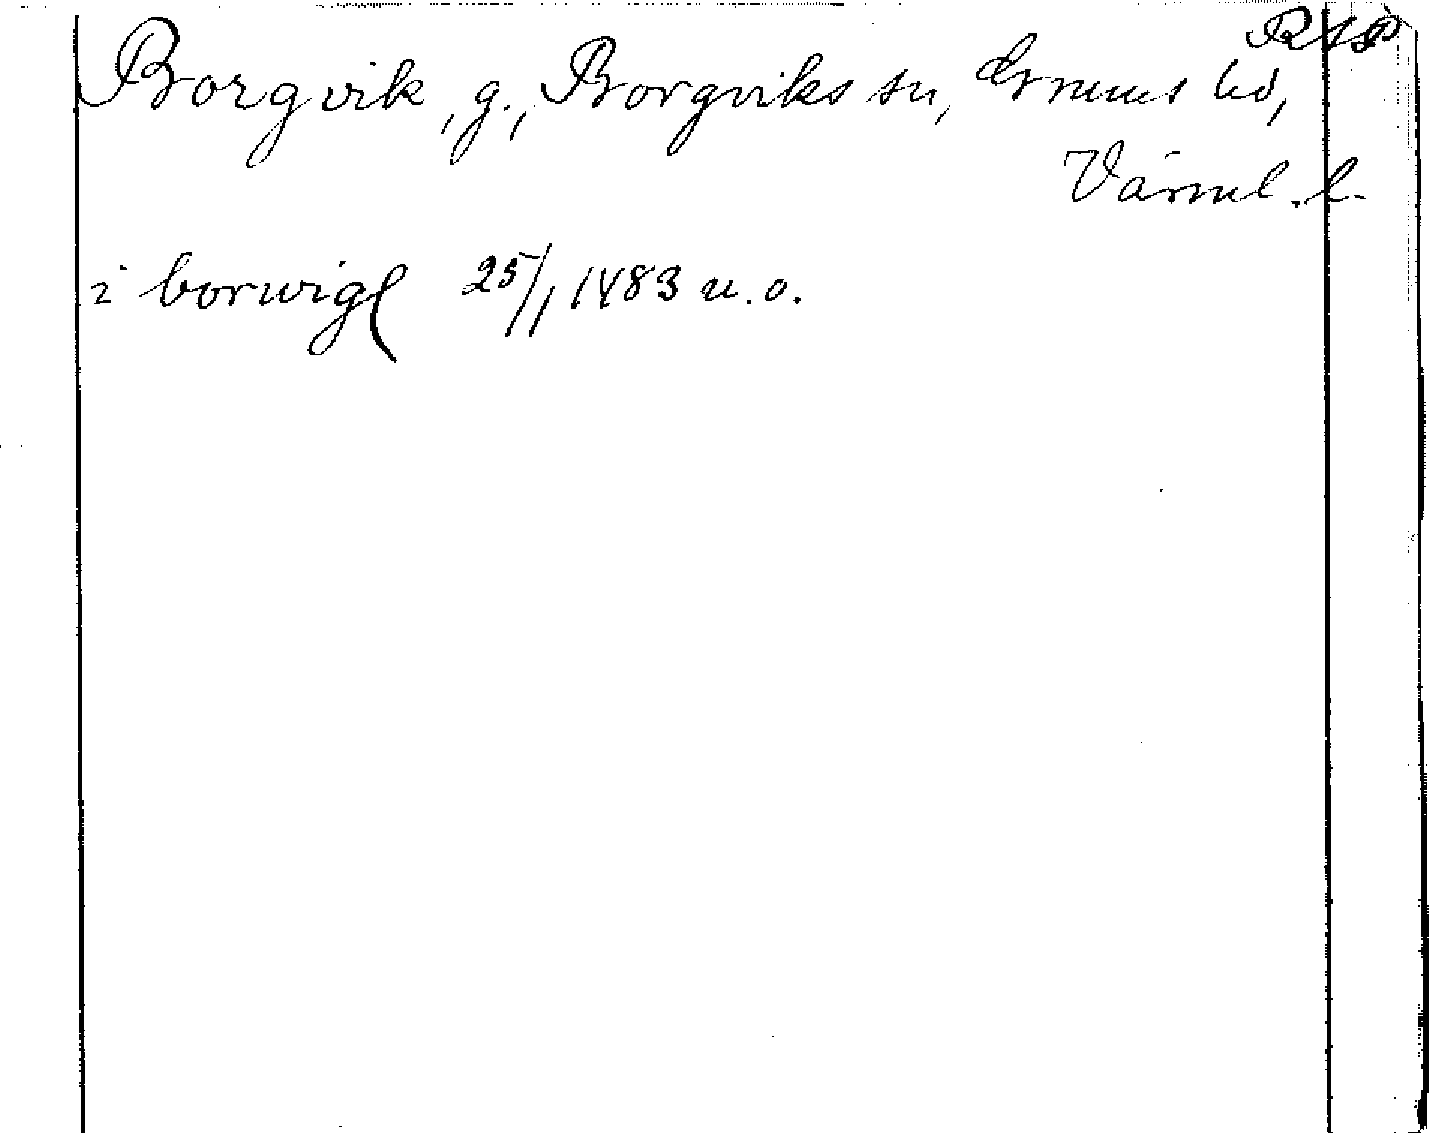 Borgvik, g., Borgviks sn, Grums hd,
Värml. l.
i borwigℓ 25/1 1483 u. o.